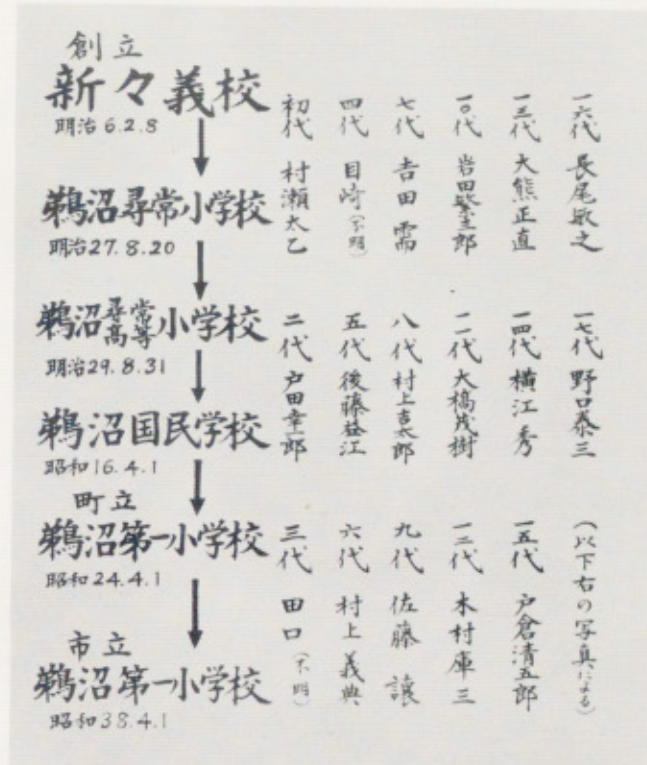 創立
新々義校
明治6.2.8
鵜沼尋常小学校
明治27.8.20
鵜沼尋常高等小学校
明治29.8.31
鵜沼国民学校
昭和16.4.1
町立
鵜沼第一小学校
昭和24.4.1
市立
鵜沼第一小学校
昭和38.4.1
初代 村瀬太乙
二代 戸田幸一郎
三代 田口(不明)
四代 目崎(不明)
五代 後藤益江
六代 村上義典
七代 吉田需
八代 村上吉太郎
九代 佐藤譲
一〇代 岩田繁三郎
一一代 大橋茂樹
一二代 木村庫三
一三代 大熊正直
一四代 横江秀
一五代 戸倉清五郎
一六代 長尾敏之
一七代 野口泰三
(以下右の写真による)